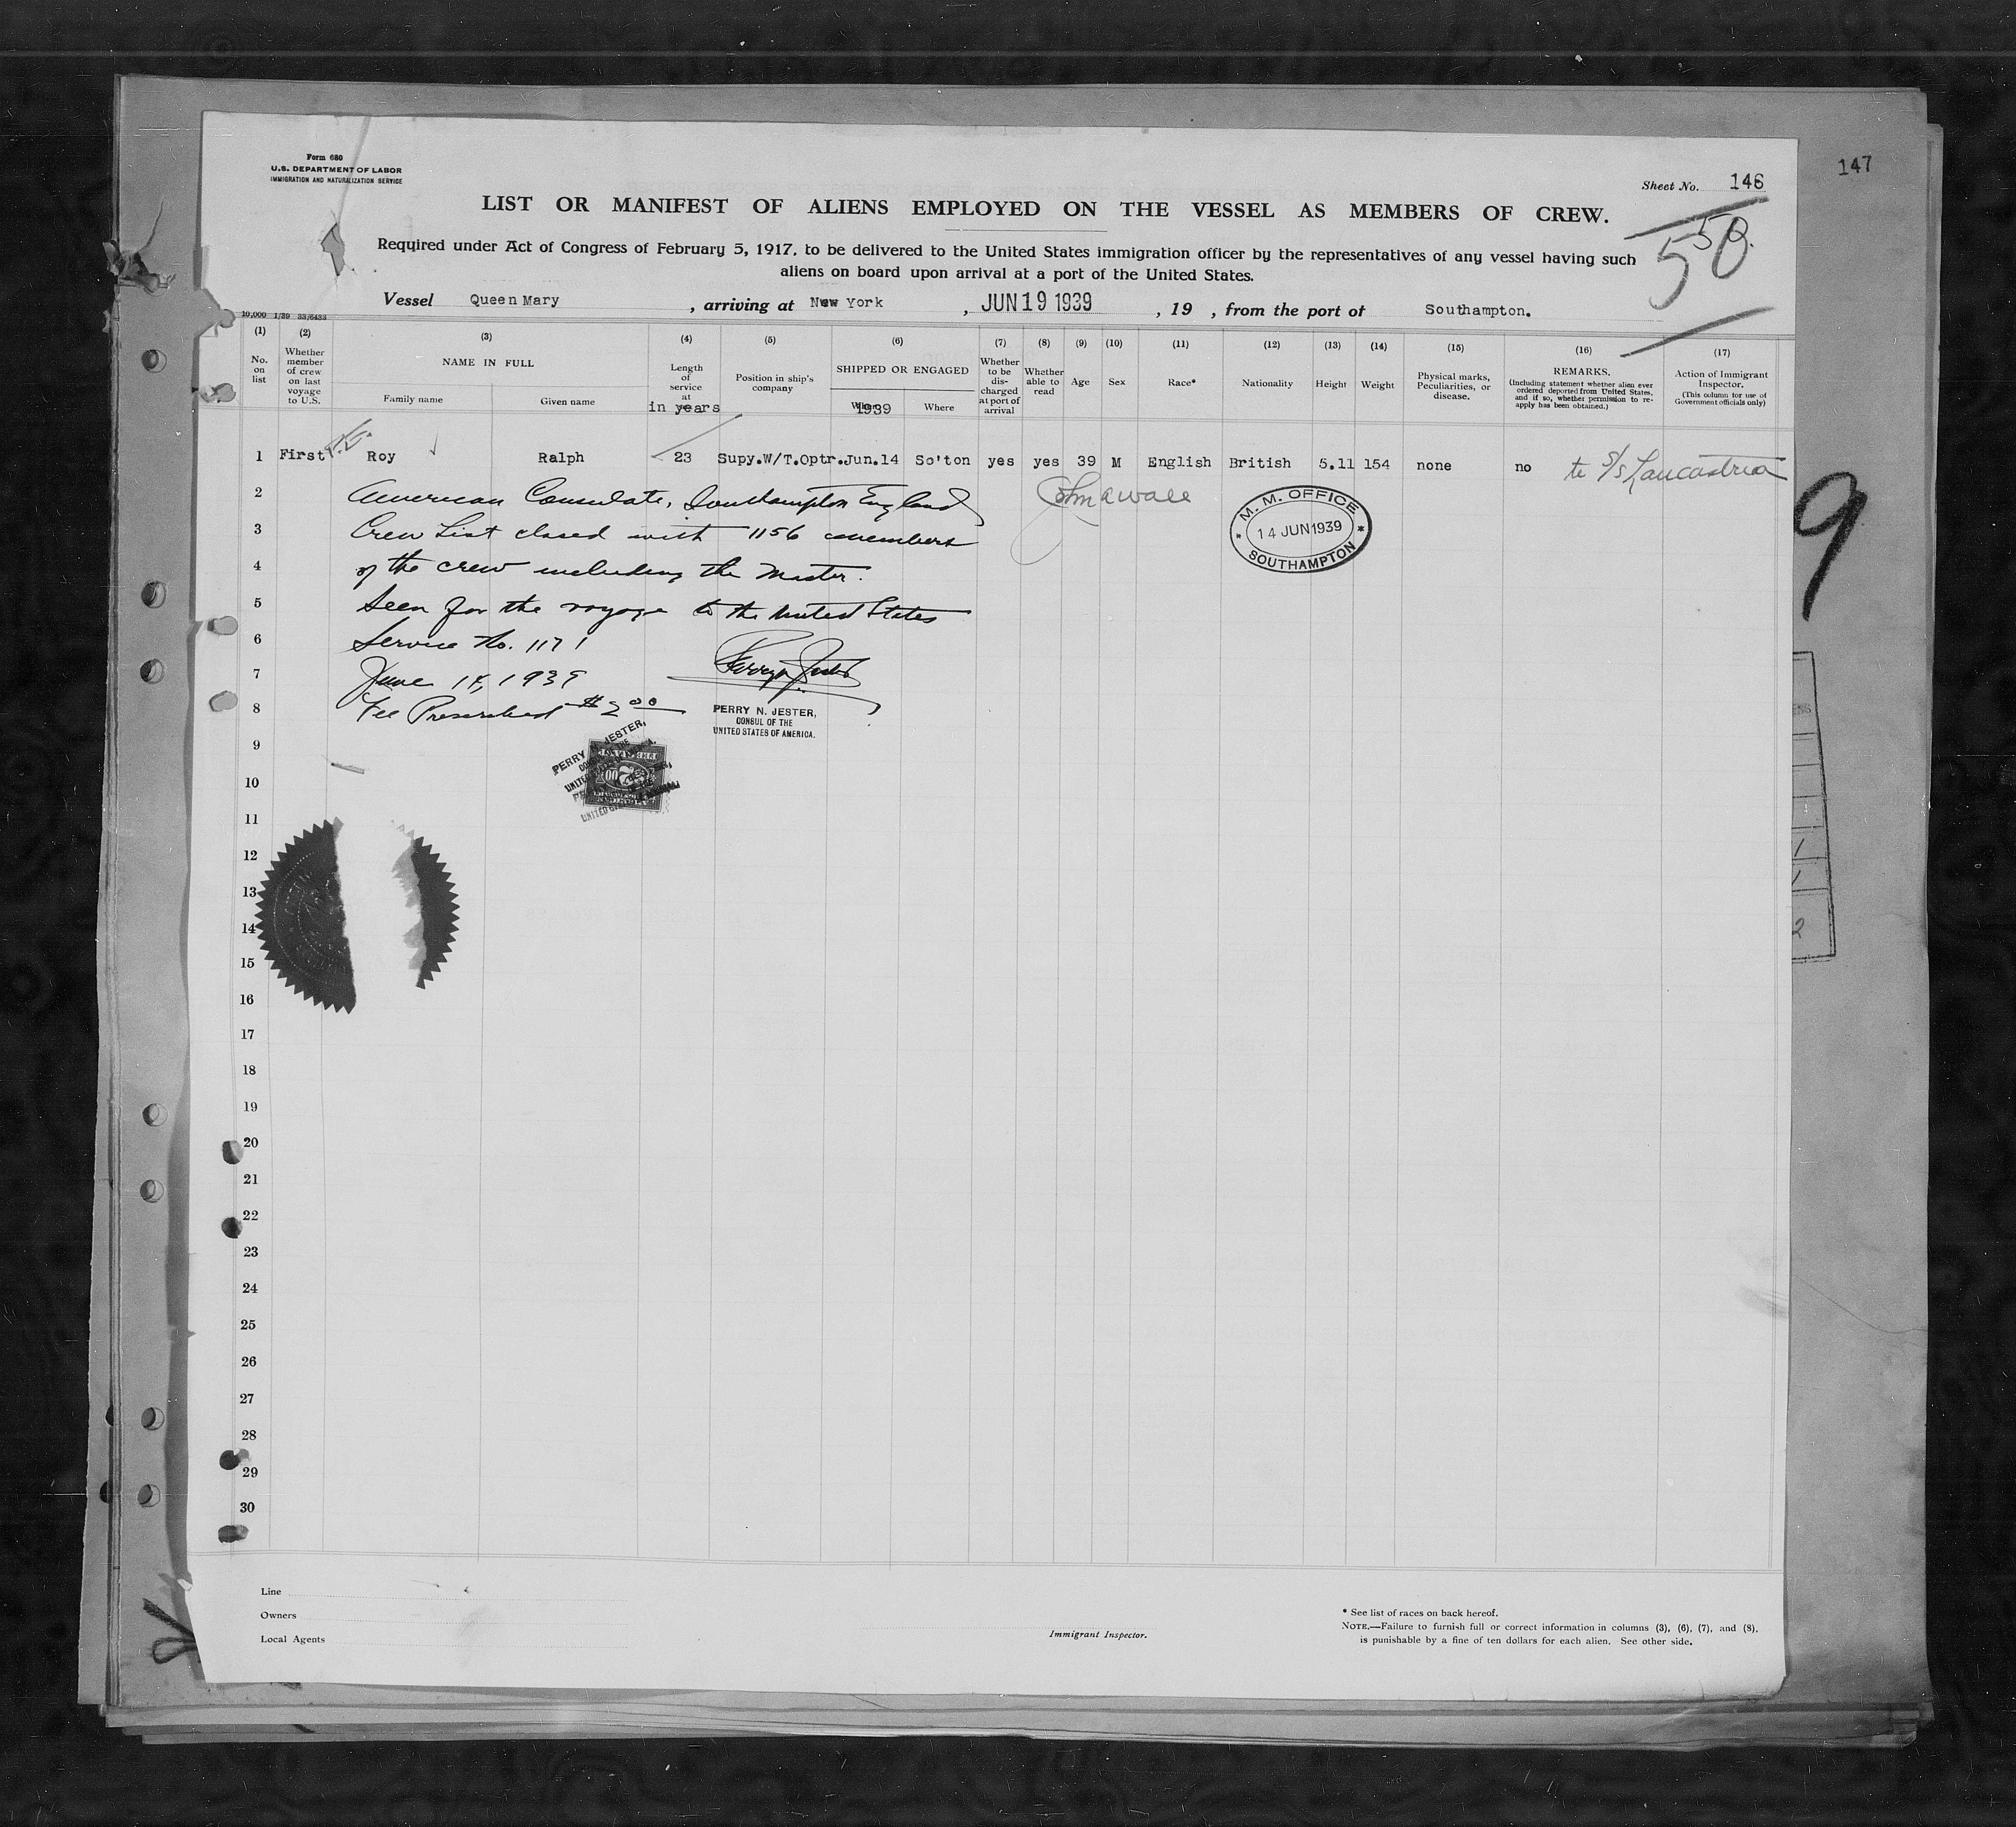 147
Form 680
U.S. DEPARTMENT OF LABOR
IMMIGRATION AND NATURALIZATION SERVICE
Sheet No. 146
LIST OR MANIFEST OF ALIENS EMPLOYED ON THE VESSEL AS MEMBERS OF CREW.
Required under Act of Congress of February 5, 1917, to be delivered to the United States immigration officer by the representatives of any vessel having such
aliens on board upon arrival at a port of the United States.
Vessel Queen Mary , arriving at New York , JUN 19 1939 , 19 , from the port of Southampton.
10,000 1/39 33/6433
(1) No. on list
(2) Whether member of crew on last voyage to U.S.
(3) NAME IN FULL
Family name Given name
(4) Length of service at
in years
(5) Position in ship's company
(6) SHIPPED OR ENGAGED
When 1939 Where
(7) Whether to be discharged at port of arrival
(8) Whether able to read
(9) Age
(10) Sex
(11) Race*
(12) Nationality
(13) Height
(14) Weight
(15) Physical marks, Peculiarities, or disease.
(16) REMARKS.
(Including statement whether alien ever ordered deported from United States, and if so, whether permission to reapply has been obtained.)
(17) Action of Immigrant Inspector.
(This column for use of Government officials only)
1 First Roy Ralph 23 Supy.W/T.Optr. Jun.14 So'ton yes yes 39 M English British 5.11 154 none no to S/S Lancastria
2 American Consulate, Southampton England
3 Crew List closed with 1156 members
4 of the crew including the Master.
5 Seen for the voyage to the United States
6 Service No. 1171
7 June 14, 1939
8 Fee Prescribed $2.00
M. M. OFFICE
14 JUN 1939
SOUTHAMPTON
PERRY N. JESTER,
CONSUL OF THE
UNITED STATES OF AMERICA.
PERRY N. JESTER,
9
9
10
11
12
13
14
15
16
17
18
19
20
21
22
23
24
25
26
27
28
29
30
Line
Owners
Local Agents
Immigrant Inspector.
* See list of races on back hereof.
NOTE.—Failure to furnish full or correct information in columns (3), (6), (7), and (8),
is punishable by a fine of ten dollars for each alien. See other side.